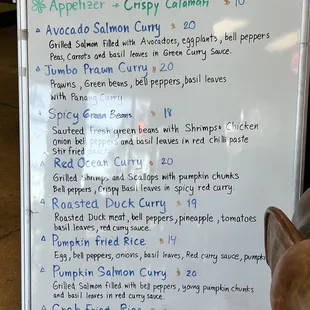 Appetizer → Crispy Calamari $ 10
Avocado Salmon Curry $ 20
Grilled Salmon filled with Avocadoes, eggplants, bell peppers
Peas, Carrots and basil leaves in Green Curry Sauce.
Jumbo Prawn Curry $ 20
Prawns, Green beans, bell peppers, basil leaves
with Panang Curry
Spicy Green Beans $ 18
Sauteed fresh green beans with Shrimps & Chicken
onion bell peppers and basil leaves in red chilli paste
Stir fried
Red Ocean Curry $ 20
Grilled Shrimps and Scallops with pumpkin chunks
Bell peppers, Crispy Basil leaves in spicy red curry.
Roasted Duck Curry $ 19
Roasted Duck meat, bell peppers, pineapple, tomatoes
basil leaves, red curry sauce.
Pumpkin fried Rice $ 14
Egg, bell peppers, onions, basil leaves, Red curry sauce, pumpk
Pumpkin Salmon Curry $ 20
Grilled Salmon filled with bell peppers, young pumpkin chunks
and basil leaves in red curry sauce.
Crab Fried Rice